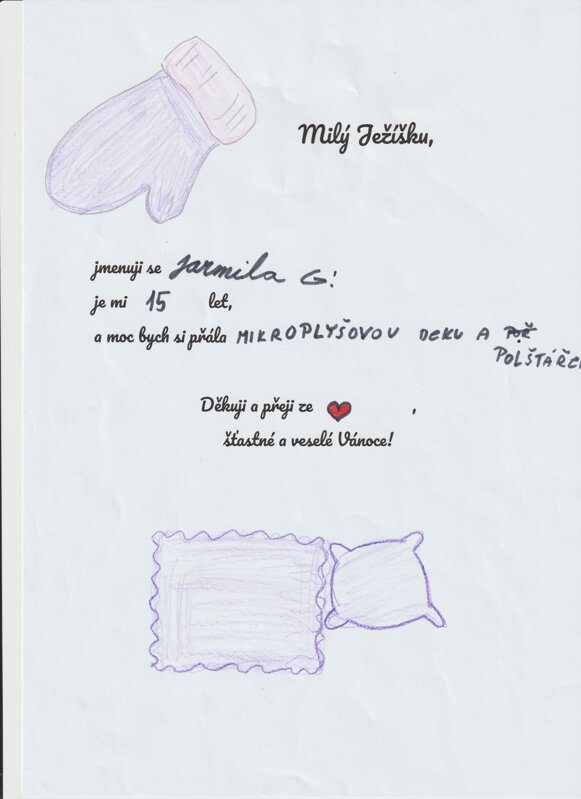 Milý Ježíšku,
jmenuji se Jarmila G.
je mi 15 let,
a moc bych si přála MIKROPLYŠOVOU DEKU A
POLŠTÁŘEK
Děkuji a přeji ze ,
šťastné a veselé Vánoce!